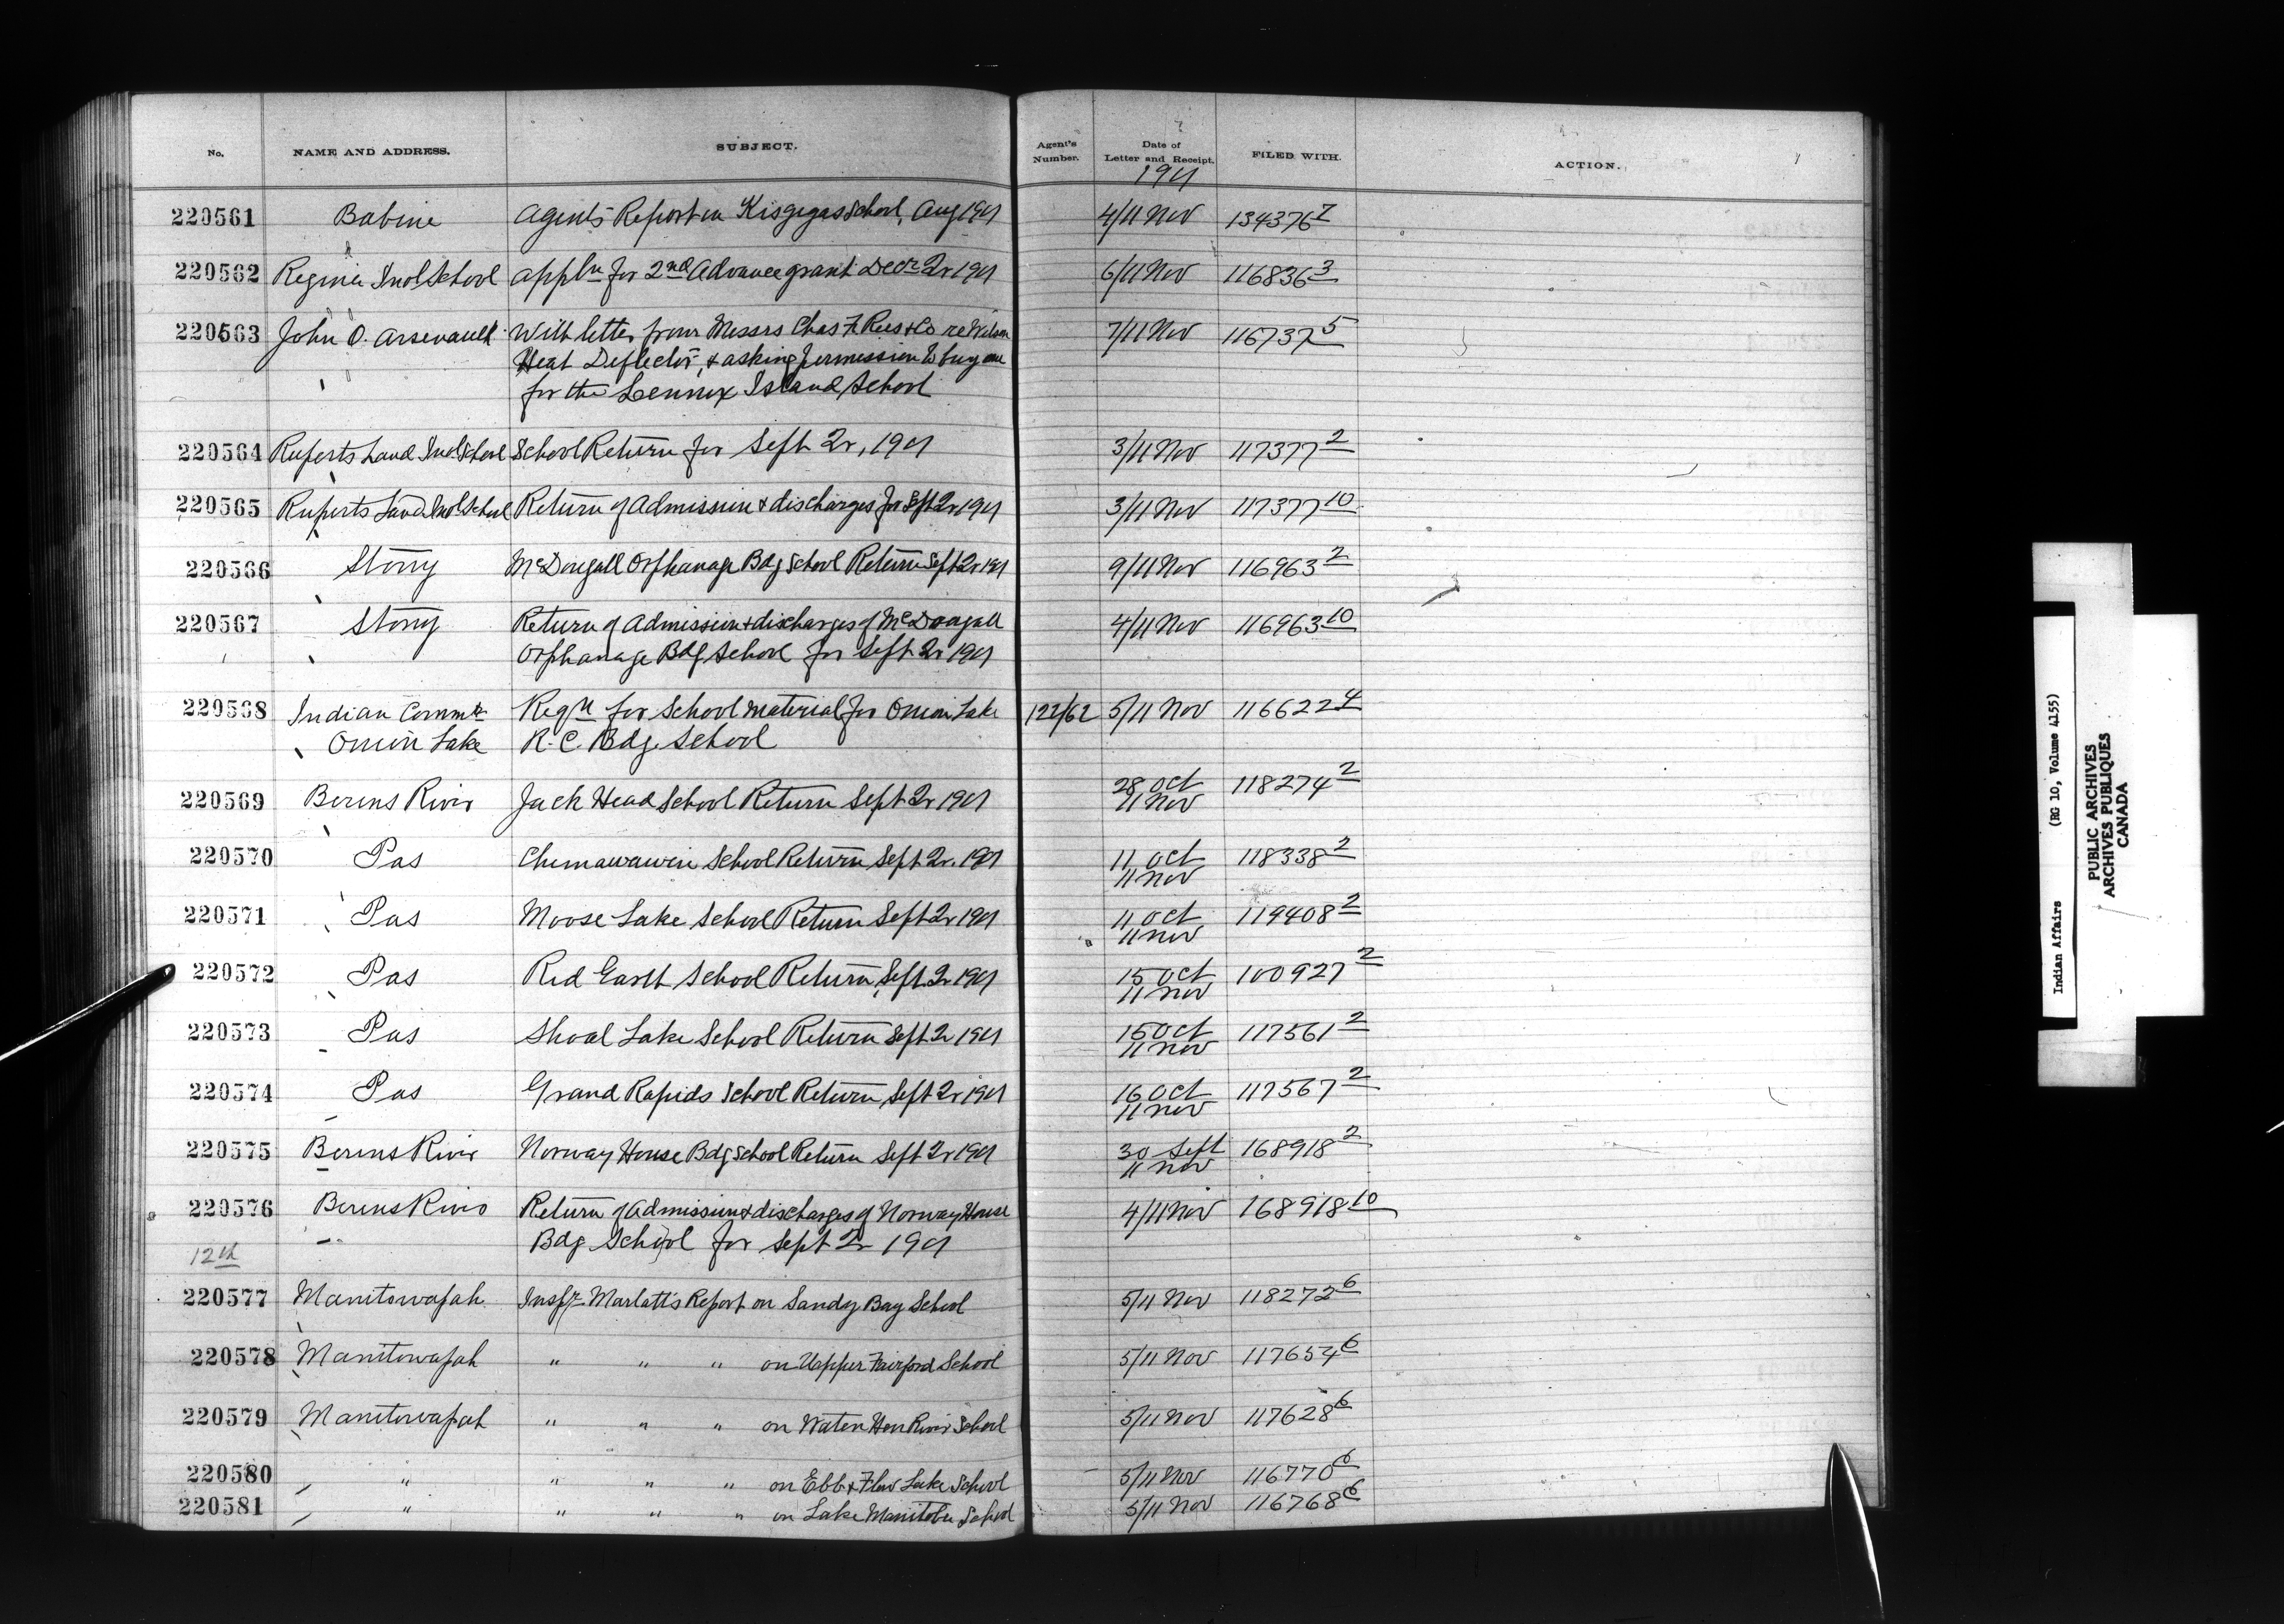 No. NAME AND ADDRESS. SUBJECT. Agent's Number. Date of Letter and Receipt. FILED WITH. ACTION.
1901
220561 Babine Agent's Report on Kisgegas School, Aug 1901 4/11 Nov 134376 7
220562 Regina Indl School Appln for 2nd Advance grant Decr Qr 1901 6/11 Nov 116836 3
220563 John O. Arsenault With letter from Messrs Chas F. Rees & Co re Wilson 7/11 Nov 116737 5
Heat Deflector, & asking permission to buy one
for the Lennox Island School
220564 Ruperts Land Indl School School Return for Sept Qr, 1901 3/11 Nov 117377 2
220565 Ruperts Land Indl School Return of Admission & discharges for Sept Qr 1901 3/11 Nov 117377 10
220566 Stony McDougall Orphanage Bdg School Return Sept Qr 1901 9/11 Nov 116963 2
220567 Stony Return of Admission & discharges of McDougall 4/11 Nov 116963 10
Orphanage Bdg School for Sept Qr 1901
220568 Indian Commr Reqn for School material for Onion Lake 122/62 5/11 Nov 116622 4
Onion Lake R.C. Bdg. School
220569 Berens River Jack Head School Return Sept Qr 1901 28 Oct 118274 2
11 Nov
220570 Pas Chemawawin School Return Sept Qr. 1901 11 Oct 118338 2
11 Nov
220571 Pas Moose Lake School Return Sept Qr 1901 11 Oct 119408 2
11 Nov
220572 Pas Red Earth School Return Sept Qr 1901 15 Oct 100927 2
11 Nov
220573 Pas Shoal Lake School Return Sept Qr 1901 15 Oct 117561 2
11 Nov
220574 Pas Grand Rapids School Return Sept Qr 1901 16 Oct 117567 2
11 Nov
220575 Berens River Norway House Bdg School Return Sept Qr 1901 30 Sept 168918 2
11 Nov
220576 Berens River Return of Admission & discharges of Norway House 4/11 Nov 168918 10
12th Bdg School for Sept Qr 1901
220577 Manitowapah Inspr. Marlatt's Report on Sandy Bay School 5/11 Nov 118272 6
220578 Manitowapah " " " on Upper Fairford School 5/11 Nov 117654 6
220579 Manitowapah " " " on Water Hen River School 5/11 Nov 117628 6
220580 " " " " on Ebb & Flow Lake School 5/11 Nov 116770 6
220581 " " " " on Lake Manitoba School 5/11 Nov 116768 6
Indian Affairs (RG 10, Volume 4155)
PUBLIC ARCHIVES
ARCHIVES PUBLIQUES
CANADA